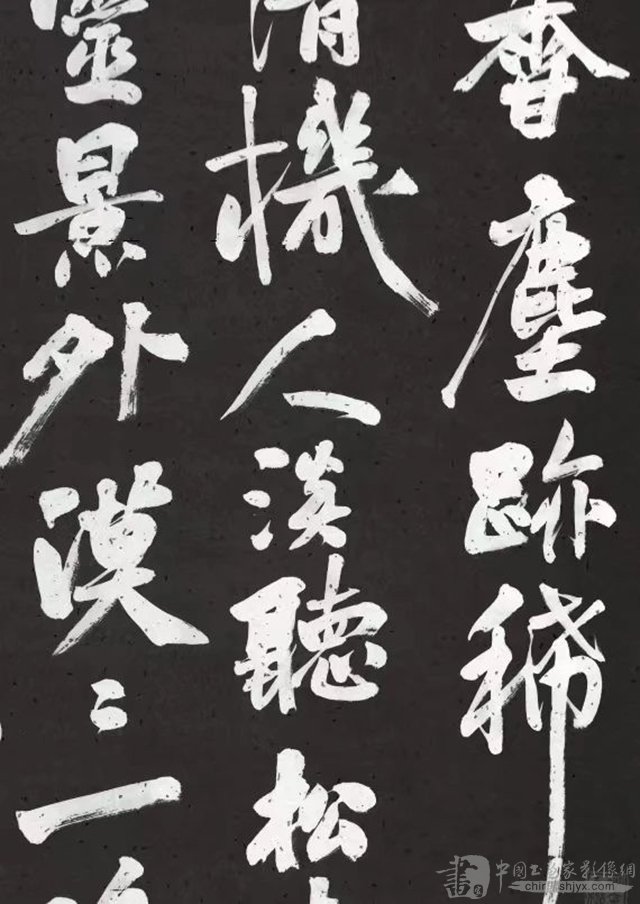 香塵跡稀
清機人淡聽松
靈景外漠〻一
書
中國书画家影像網
chinashjyx.com